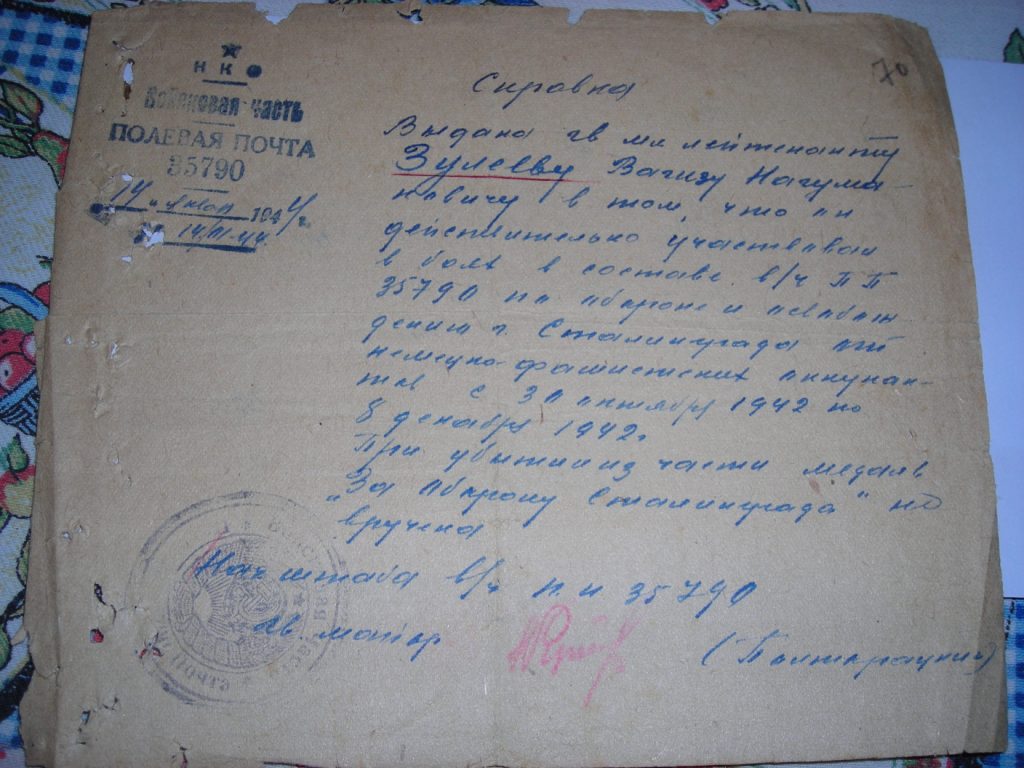 70
НКО
Войсковая часть
ПОЛЕВАЯ ПОЧТА
35790
14 " январ 1944 г.
Справка
Выдана гв мл лейтенанту
Зулеву Вагизу Нагума-
новичу в том, что он
действительно участвовал
в боях в составе в/ч П П
35790 по обороне и освобож
дению г. Сталинграда от
немецко-фашистских оккупан-
тов с 30 октября 1942 по
8 декабря 1942г
При убытии из части медаль
"За оборону Сталинграда" не
вручена
Нач штаба в/ч п.п 35790
гв. майор
(Полторацкий)